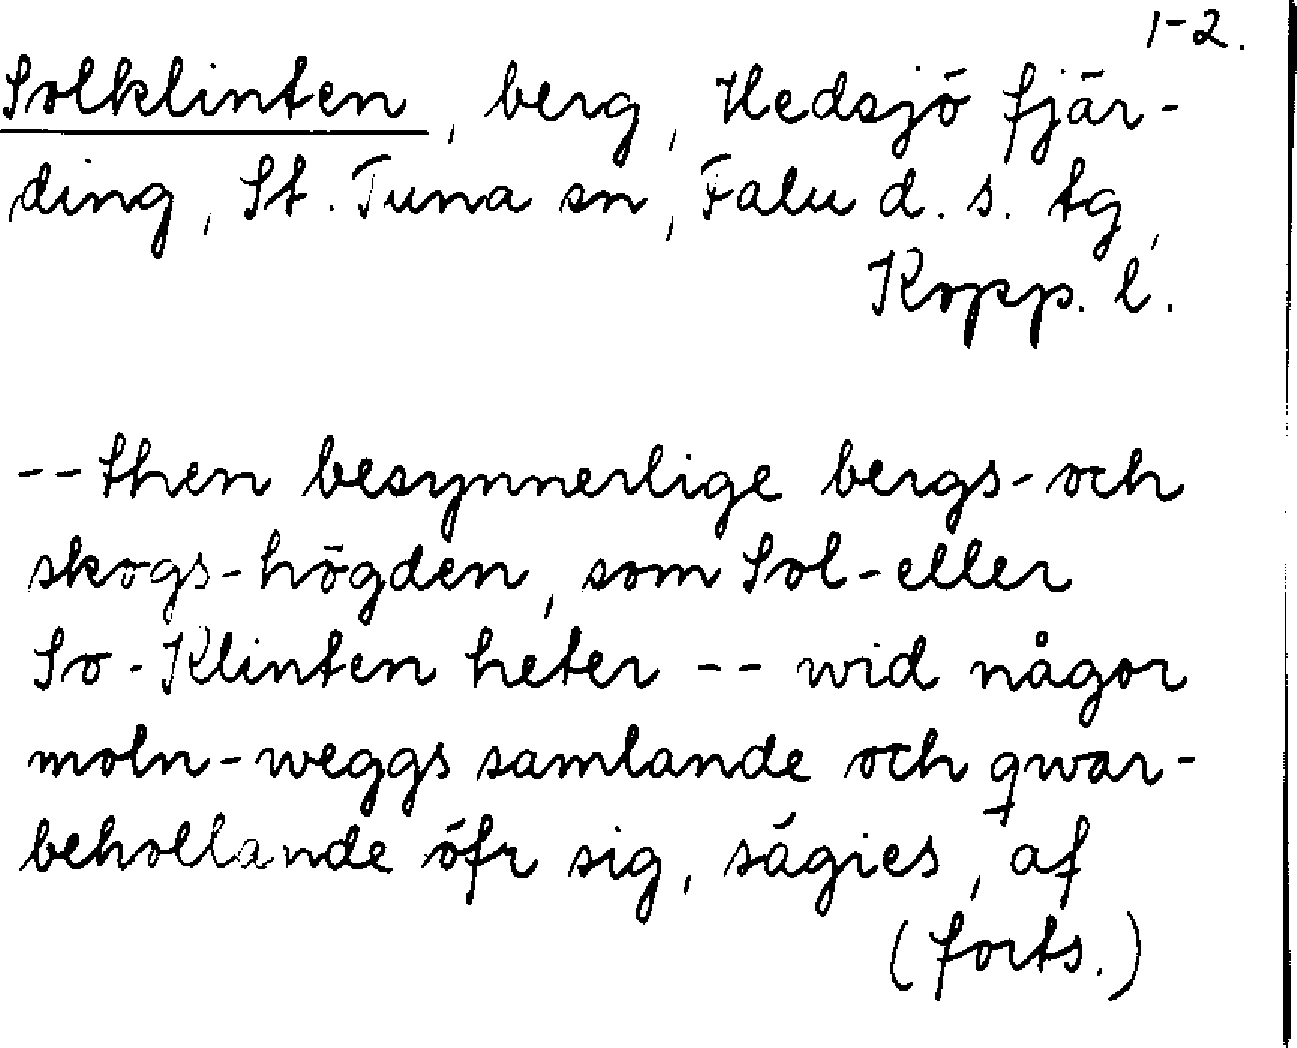 1-2.
Solklinten, berg, Hedsjö fjär-
ding, St. Tuna sn, Falu d. s. tg,
Kopp. l.
-- then besynnerlige bergs- och
skogs-högden, som Sol- eller
So-Klinten heter -- wid någor
moln-weggs samlande och qwar-
behollande öfr sig, sägies, af
(forts.)